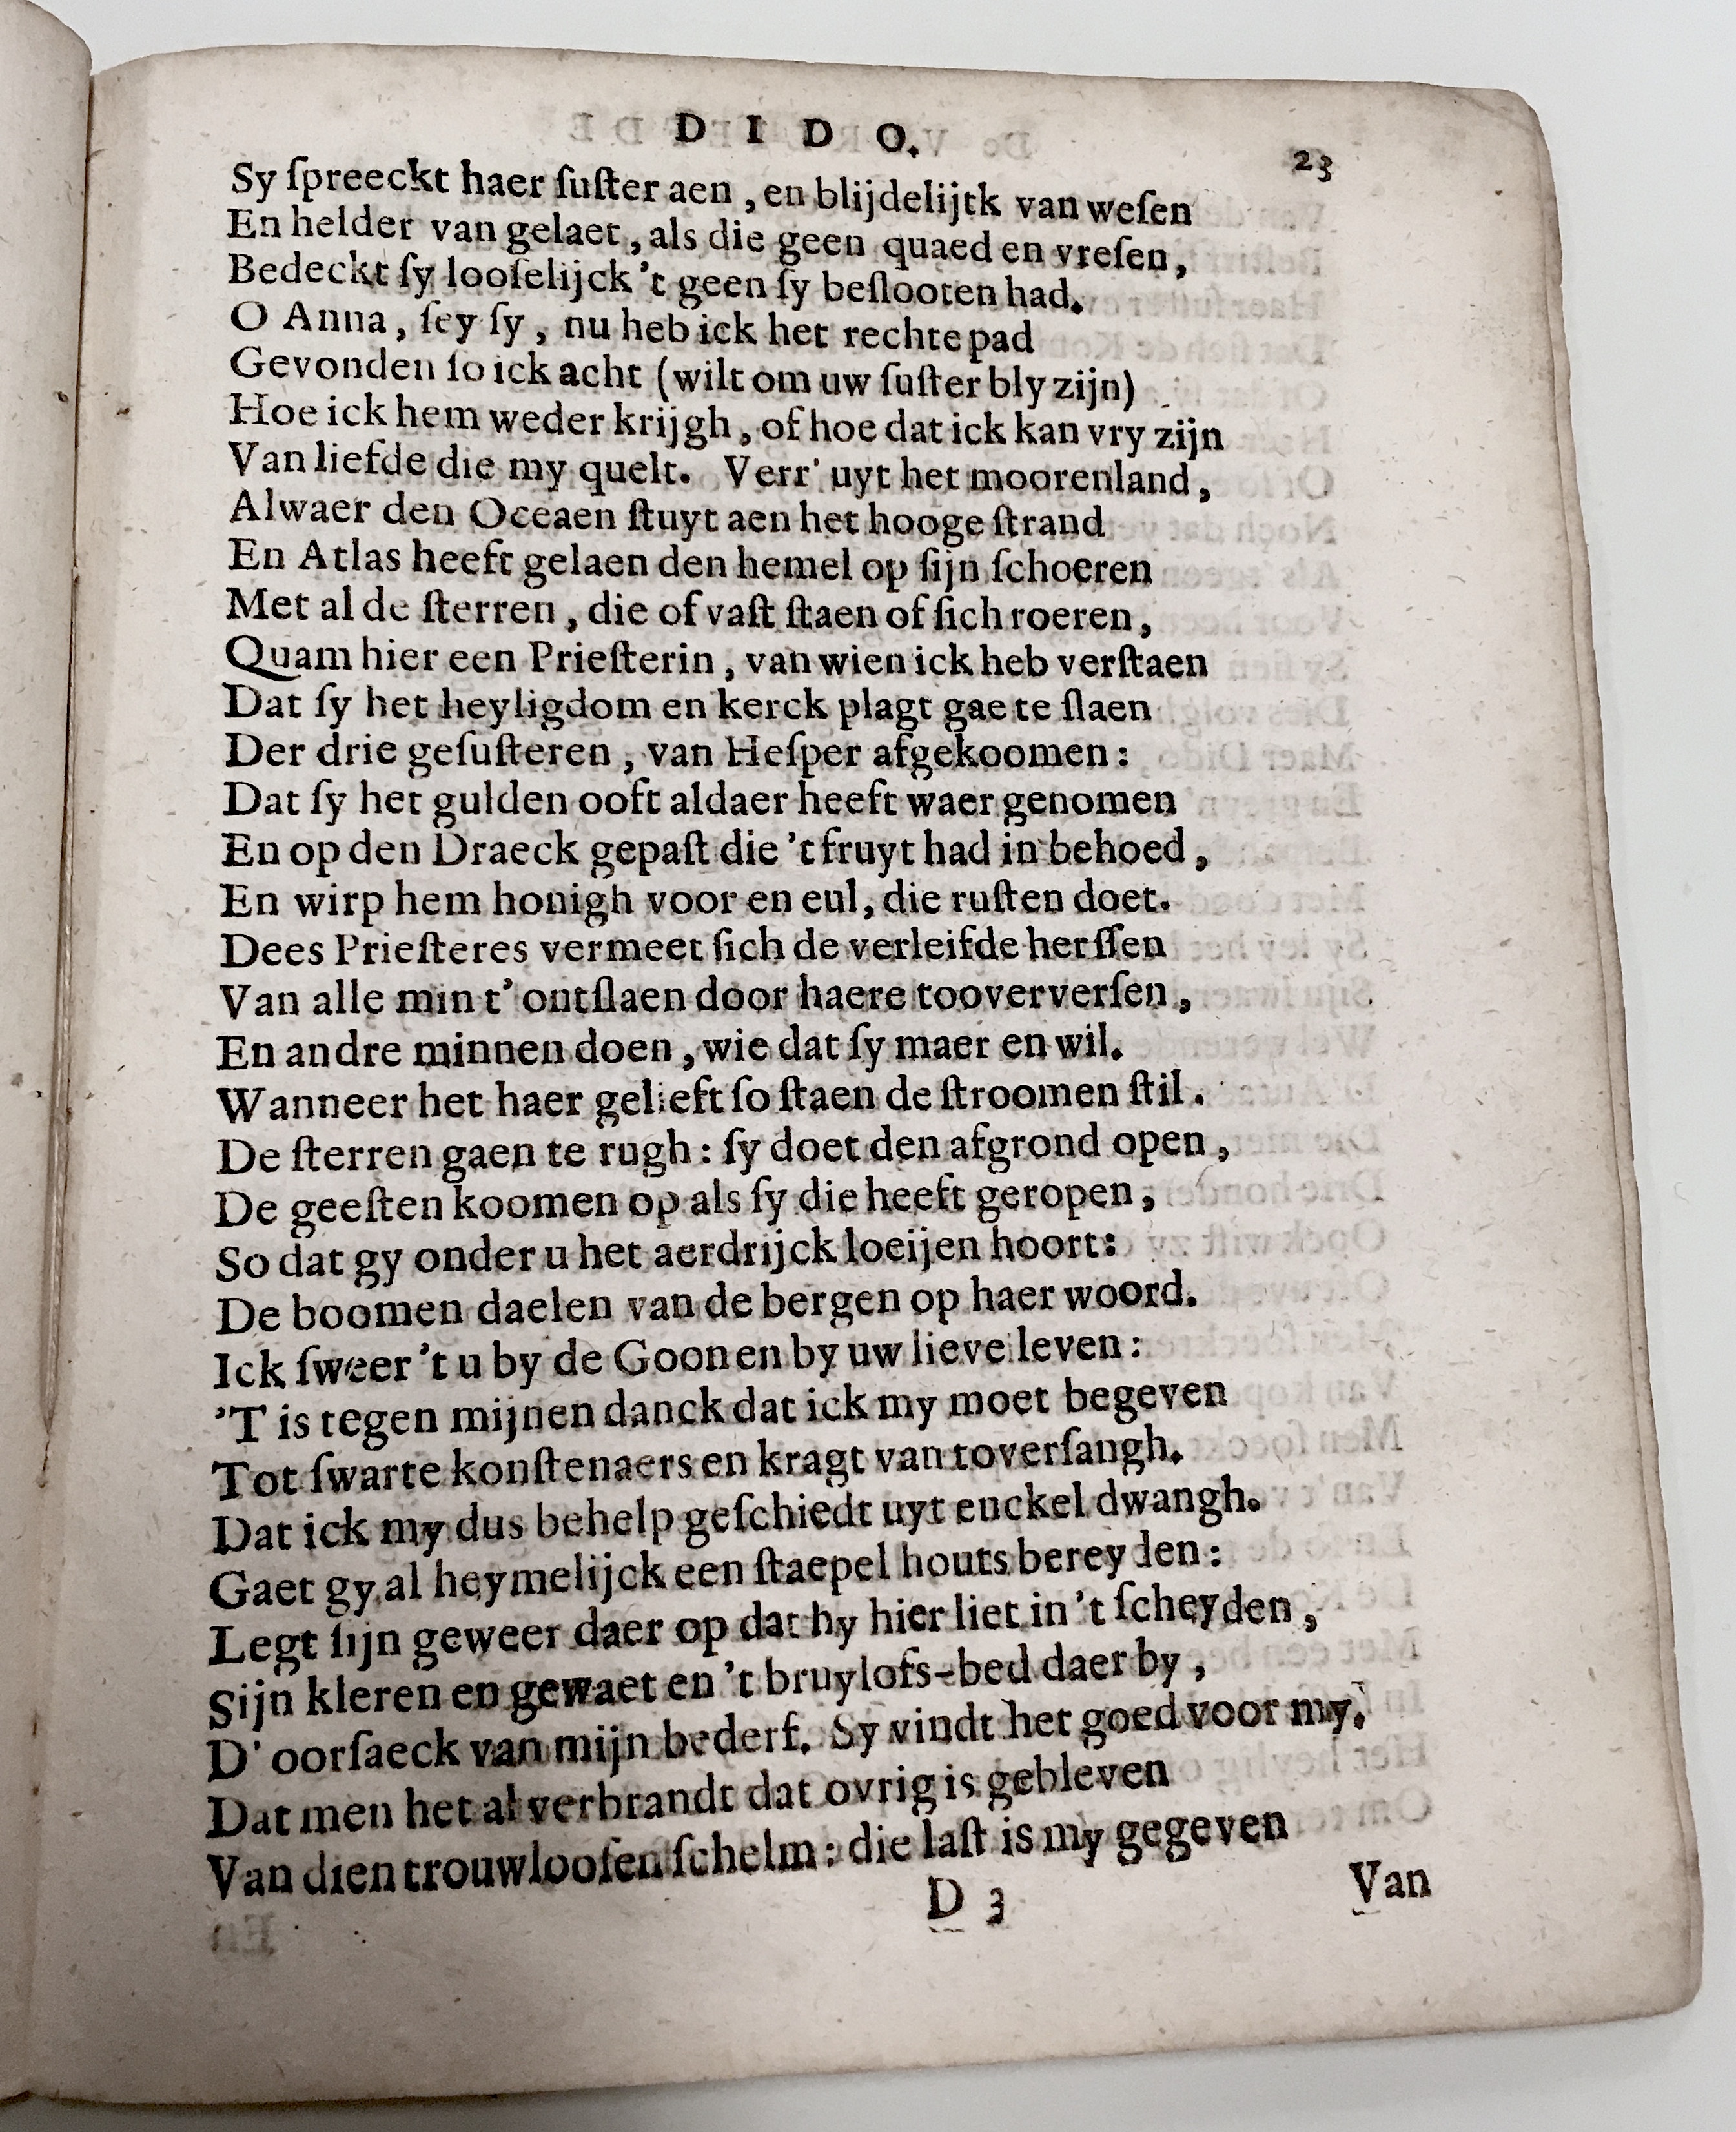 D I D O.
23
Sy ſpreeckt haer ſuſter aen, en blijdelijtk van weſen
En helder van gelaet, als die geen quaed en vreſen,
Bedeckt ſy looſelijck 't geen ſy beſlooten had.
O Anna, ſey ſy, nu heb ick het rechte pad
Gevonden ſo ick acht (wilt om uw ſuſter bly zijn)
Hoe ick hem weder krijgh, of hoe dat ick kan vry zijn
Van liefde die my quelt. Verr' uyt het moorenland,
Alwaer den Oceaen ſtuyt aen het hooge ſtrand
En Atlas heeft gelaen den hemel op ſijn ſchoeren
Met al de ſterren, die of vaſt ſtaen of ſich roeren,
Quam hier een Prieſterin, van wien ick heb verſtaen
Dat ſy het heyligdom en kerck plagt gae te ſlaen
Der drie geſuſteren, van Heſper afgekoomen:
Dat ſy het gulden ooft aldaer heeft waer genomen
En op den Draeck gepaſt die 't fruyt had in behoed,
En wirp hem honigh voor en eul, die ruſten doet.
Dees Prieſteres vermeet ſich de verleifde herſſen
Van alle min t' ontſlaen door haere tooververſen,
En andre minnen doen, wie dat ſy maer en wil.
Wanneer het haer gelieft ſo ſtaen de ſtroomen ſtil.
De ſterren gaen te rugh: ſy doet den afgrond open,
De geeſten koomen op als ſy die heeft geropen,
So dat gy onder u het aerdrijck loeijen hoort:
De boomen daelen van de bergen op haer woord.
Ick ſweer 't u by de Goon en by uw lieve leven:
'T is tegen mijnen danck dat ick my moet begeven
Tot ſwarte konſtenaers en kragt van toverſangh.
Dat ick my dus behelp geſchiedt uyt enckel dwangh.
Gaet gy al heymelijck een ſtaepel houts bereyden:
Legt ſijn geweer daer op dat hy hier liet in 't ſcheyden,
Sijn kleren en gewaet en 't bruylofs-bed daer by,
D' oorſaeck van mijn bederf. Sy vindt het goed voor my,
Dat men het al verbrandt dat ovrig is gebleven
Van dien trouwlooſen ſchelm: die laſt is my gegeven
D 3
Van